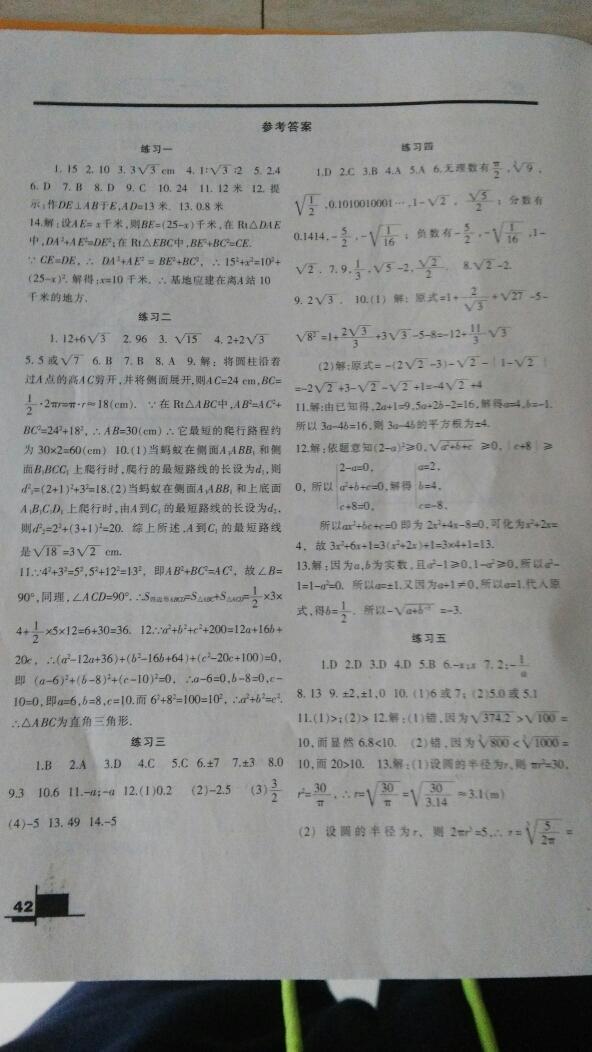 参考答案
练习一
1. 15 2. 10 3. 3√3 cm 4. 1∶√3∶2 5. 2.4
6. D 7. B 8. D 9. C 10. 24 11. 12 米 12. 提
示:作DE⊥AB于E,AD=13 米. 13. 0.8 米
14.解:设AE= x千米,则BE=(25-x)千米,在 Rt△DAE
中,DA²+AE²=DE²;在 Rt△EBC中,BE²+BC²=CE.
∵ CE=DE, ∴ DA²+AE² = BE²+BC², ∴ 15²+x²=10²+
(25-x)². 解得:x=10 千米. ∴ 基地应建在离A站 10
千米的地方.
练习二
1. 12+6√3 2. 96 3. √15 4. 2+2√3
5. 5 或√7 6. B 7. B 8. A 9. 解: 将圆柱沿着
过A点的高AC剪开,并将侧面展开,则AC=24 cm,BC=
1/2·2πr=π·r≈18(cm). ∵在 Rt△ABC中,AB²=AC²+
BC²=24²+18², ∴ AB=30(cm) ∴它最短的爬行路程约
为 30×2=60(cm) 10.(1)当蚂蚁在侧面A₁ABB₁和侧
面B₁BCC₁上爬行时,爬行的最短路线的长设为d₁,则
d²₁=(2+1)²+3²=18.(2)当蚂蚁在侧面A₁ABB₁和上底面
A₁B₁C₁D₁上爬行时,由A到C₁的最短路线的长设为d₂,
则d²₂=2²+(3+1)²=20. 综上所述,A到C₁的最短路线
是√18=3√2 cm.
11.∵4²+3²=5²,5²+12²=13², 即AB²+BC²=AC², 故∠B=
90°,同理,∠ACD=90°. ∴S四边形ABCD=S△ABC+S△ACD=1/2×3×
4+1/2×5×12=6+30=36. 12.∵a²+b²+c²+200=12a+16b+
20c, ∴(a²-12a+36)+(b²-16b+64)+(c²-20c+100)=0,
即 (a-6)²+(b-8)²+(c-10)²=0, ∴a-6=0,b-8=0,c-
10=0,即a=6,b=8,c=10.而 6²+8²=100=10², ∴a²+b²=c².
∴△ABC为直角三角形.
练习三
1.B 2.A 3.D 4.C 5.C 6.±7 7.±3 8.0
9.3 10.6 11.-a;-a 12.(1)0.2 (2)-2.5 (3)3/2
(4)-5 13. 49 14.-5
练习四
1.D 2.C 3.B 4.A 5.A 6.无理数有π/2,∛9,
√(1/2),0.1010010001…,1-√2,√5/2; 分数有
0.1414,-5/2,-√(1/16); 负数有-5/2,-√(1/16),1-
√2. 7. 9,1/3,√5-2,√2/2. 8.√2-2.
9. 2√3. 10.(1) 解: 原式=1+2/√3+√27-5-
√8²=1+2√3/3+3√3-5-8=-12+11/3√3
(2)解:原式= -(2√2-3)-√2-|1-√2|
=-2√2+3-√2-√2+1=-4√2+4
11.解:由已知得,2a+1=9,5a+2b-2=16,解得a=4,b=-1.
所以 3a-4b=16,则 3a-4b的平方根为±4.
12.解:依题意知(2-a)²≥0,√(a²+b+c)≥0,|c+8|≥
0, 所以{2-a=0, a²+b+c=0, c+8=0, 解得{a=2, b=4, c=-8,
所以ax²+bx+c=0 即为 2x²+4x-8=0,可化为x²+2x=
4, 故 3x²+6x+1=3(x²+2x)+1=3×4+1=13.
13.解:因为a,b为实数,且a²-1≥0,1-a²≥0,所以a²-
1=1-a²=0. 所以a=±1.又因为a+1≠0,所以a=1.代入原
式,得b=1/2. 所以-√(a+b⁻³)=-3.
练习五
1.D 2.D 3.D 4.D 5.B 6.-x;x 7. 2;-1/a
8. 13 9. ±2,±1,0 10. (1)6 或 7; (2)5.0 或 5.1
11.(1)>;(2)> 12.解:(1)错,因为√374.2>√100=
10,而显然 6.8<10. (2)错,因为∛800<∛1000=
10,而 20>10. 13.解:(1)设圆的半径为r,则 πr²=30,
r²=30/π, ∴r=√(30/π)=√(30/3.14)≈3.1(m)
(2) 设圆的半径为r, 则 2πr³=5,∴ r=∛(5/2π)=
42